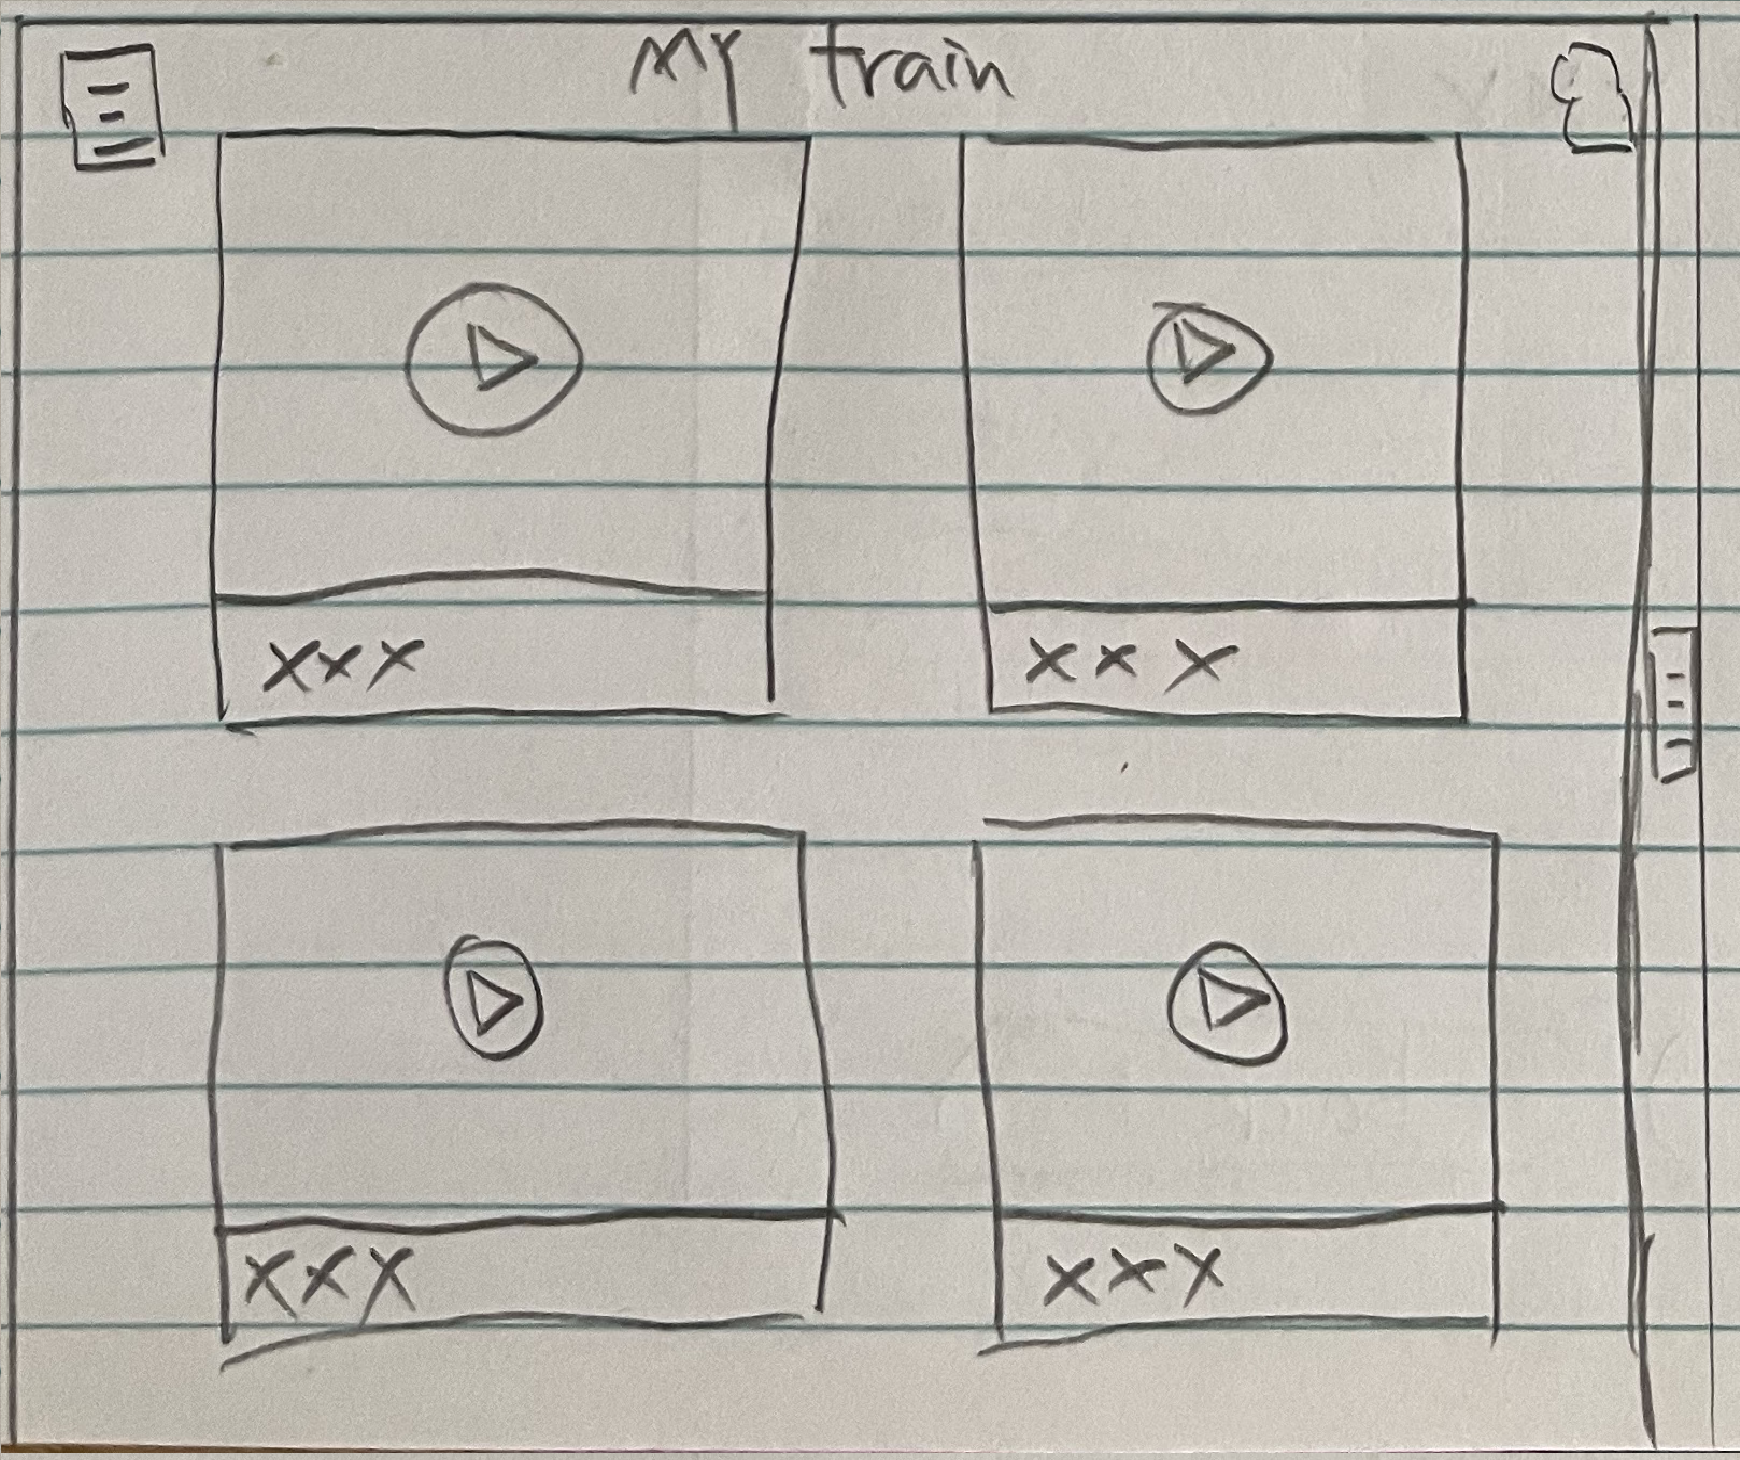 My train
xxx
xxx
xxx
xxx